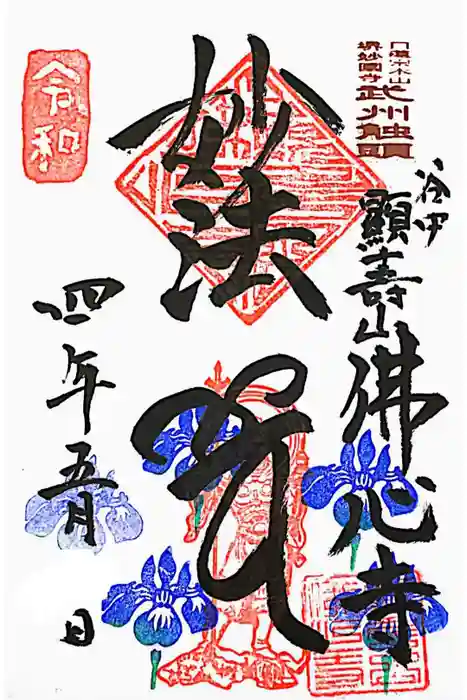 日蓮宗本山
堺妙國寺
武州触頭
谷中
顯壽山佛心寺
妙法
令和
四年五月 日